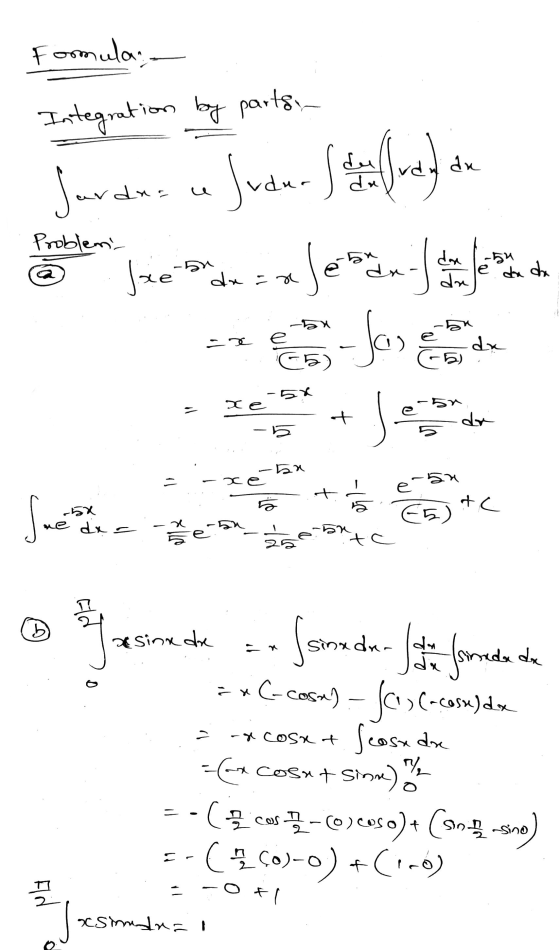 Formula:-
Integration by parts:-
∫uv dx = u ∫v dx - ∫ du/dx (∫v dx) dx
Problem:-
(a) ∫xe^(-5x) dx = x ∫e^(-5x) dx - ∫ dx/dx ∫e^(-5x) dx dx
= x e^(-5x)/(-5) - ∫(1) e^(-5x)/(-5) dx
= xe^(-5x)/-5 + ∫ e^(-5x)/5 dx
= -xe^(-5x)/5 + 1/5 e^(-5x)/(-5) + c
∫xe^(-5x) dx = -x/5 e^(-5x) - 1/25 e^(-5x) + c
(b) ∫_0^(π/2) x sinx dx = x ∫sinx dx - ∫ dx/dx ∫sinx dx dx
= x (-cosx) - ∫(1) (-cosx) dx
= -x cosx + ∫cosx dx
= (-x cosx + sinx)_0^(π/2)
= -(π/2 cos π/2 - (0) cos0) + (sin π/2 - sin0)
= -(π/2 (0) - 0) + (1-0)
= -0 + 1
∫_0^(π/2) x sinx dx = 1